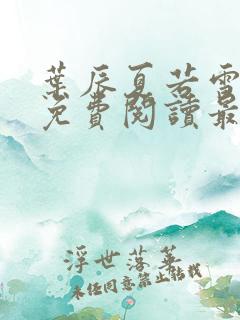 葉辰夏若雪
免費閱讀最
浮世落華
未經同意禁止轉載